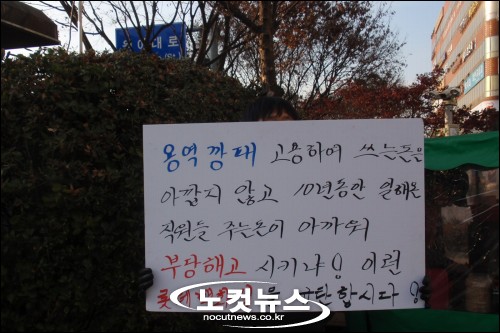 용역깡패 고용하여 쓰는돈은
아깝지 않고 10년동안 일해온
직원들 주는돈이 아까워
부당해고 시키냐! 이런
규탄합시다!
노컷뉴스
nocutnews.co.kr